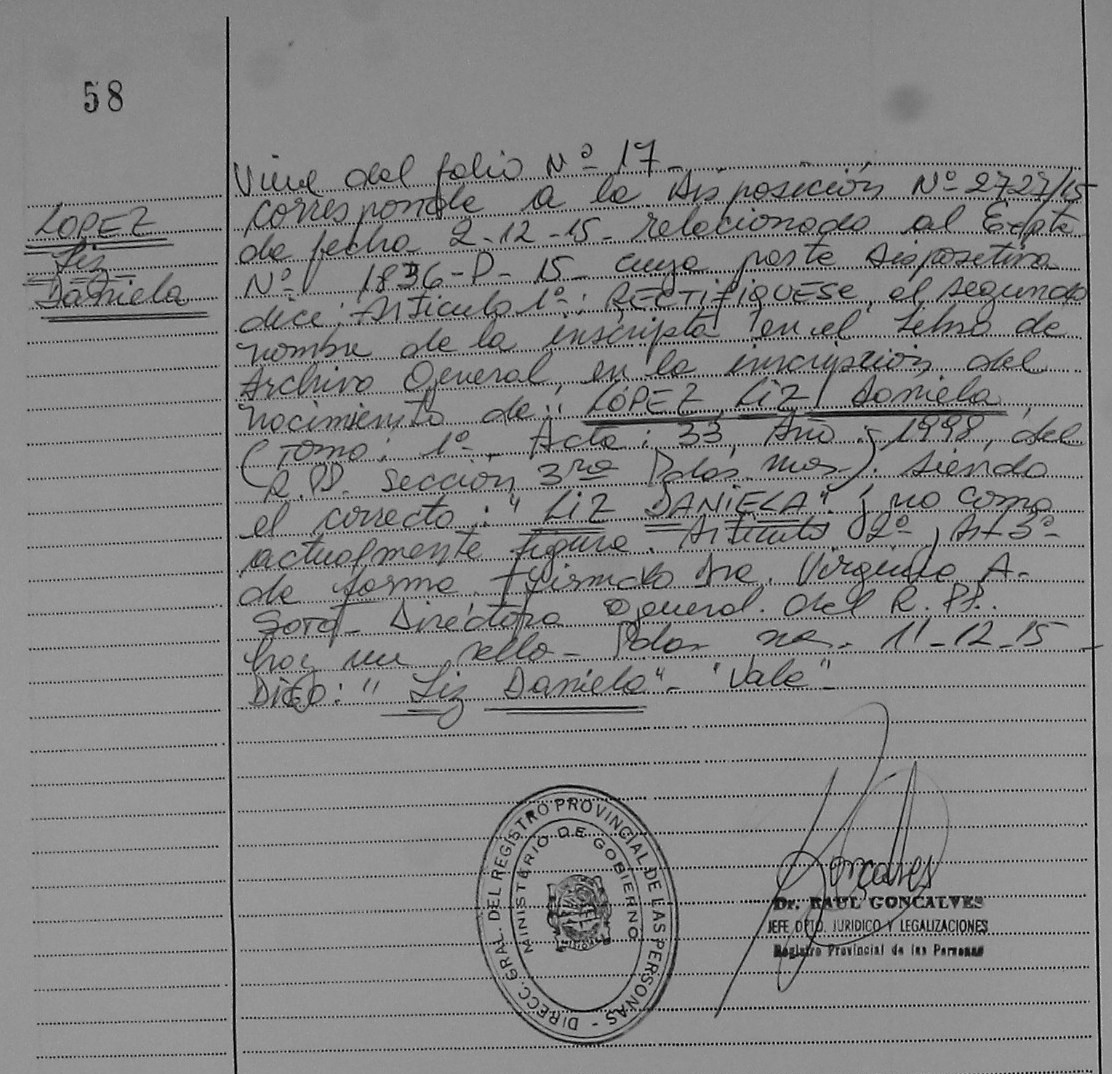 58
LOPEZ
Liz
Daniela
Viene del folio Nº 17-
corresponde a la Disposición Nº 2727/15
de fecha 2-12-15- relacionado al Expte
Nº 1836-P-15- cuya parte dispositiva
dice: Articulo 1º: RECTIFIQUESE, el segundo
nombre de la inscripta en el Libro de
Archivo General, en la inscripción del
nacimiento de: LÓPEZ, LiZ Daniela,
(Tomo: 1º, Acta: 33, Año: 1998, del
R.PP. Sección 3ra Pdas. Mnes.). siendo
el correcto: "LiZ DANIELA" y no como
actualmente figura. Articulo 2º, Art 3º-
de forma. Firmado Dra. Virginia A.
SOTO- Directora General. del R. PP.
hay un sello- Pdas 11-12-15-
DIGO: "Liz Daniela"- "Vale"-
DIRECC. GRAL. DEL REGISTRO PROVINCIAL DE LAS PERSONAS -
MINISTERIO DE GOBIERNO
Goncalves
Dr. RAUL GONCALVES
JEFE DPTO. JURIDICO Y LEGALIZACIONES
Registro Provincial de las Personas